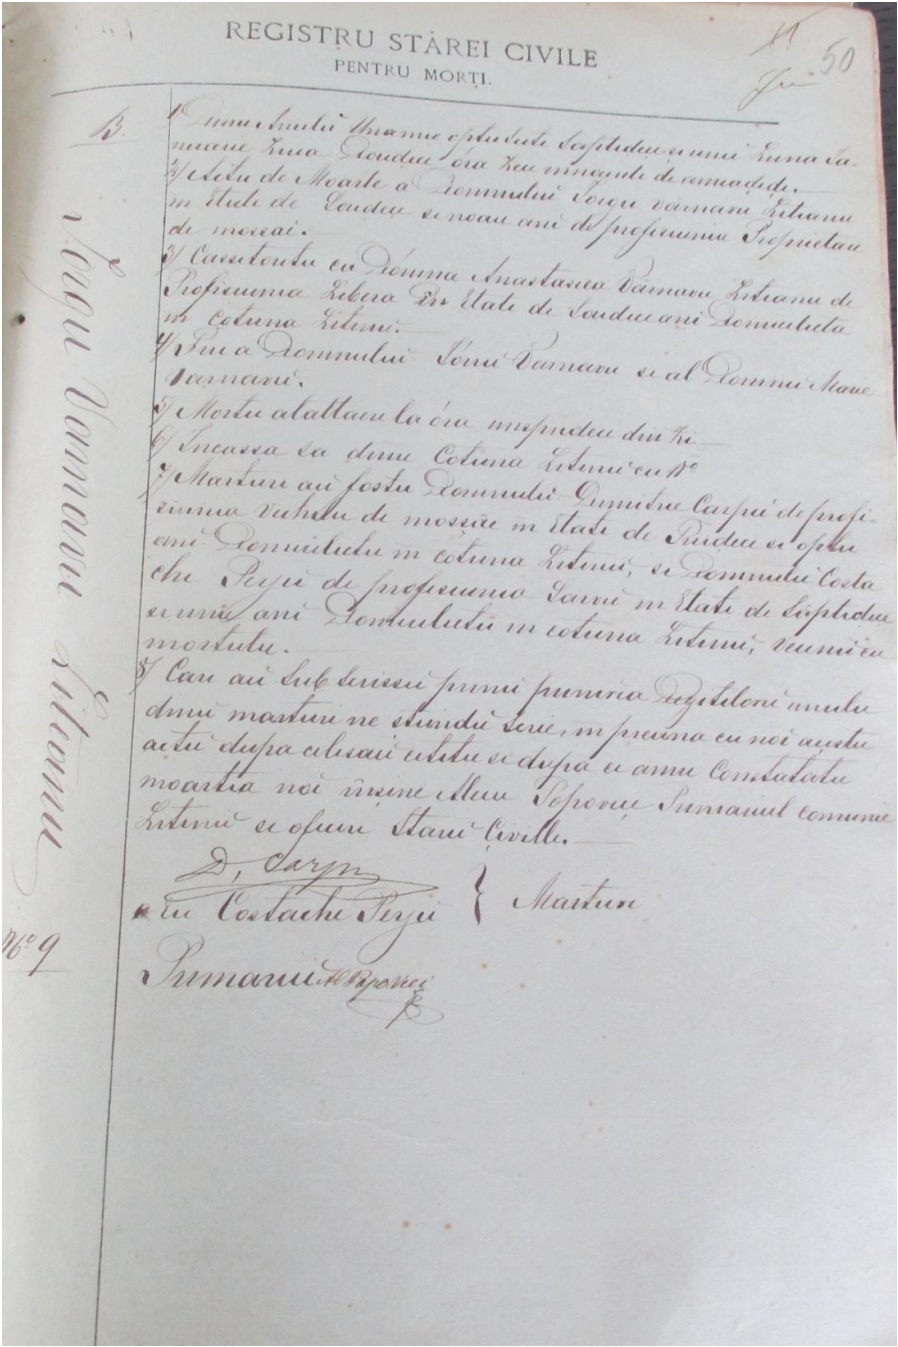 50
REGISTRU STĂREI CIVILE
PENTRU MORȚI.
B.
1) Dinu Anulu Unamie optu sute Saptedeci si unu Luna Ia-
nuarie Ziua Douedeci óra Zece nnainte de ameadedi.
2) Actu de Moarte a Domnului Iorgu Varnavu Liteanu
in Etate de Saidece si noue ani de profisiunia Proprietaru
de mossai.
3) Cassetoritu cu Dómna Anastasiea Varnavu Liteanu de
Profisiunia Libera in Etate de Saidece ani Domiciliata
in cotuna Liteni.
4) Fiu a Domnului Ionu Varnavu si al Domni Marie
Varnavu.
5) Mortu la óra unspridece din Zi
6) In cassa sa dinu Cotuna Liteni cu No
7) Marturi au fostu Domnului Dumitru Carpu de profi-
siunia Vechilu de mossiu in Etate de Treidece si optu
ani Domiciliatu in cotuna Liteni, si Domnului Costa
che Perju de profisiunia in Etate de Săptedeci
si unu ani Domiciliatu in cotuna Liteni, vecinii cu
mortulu.
8) Care au Subscrissu prinu punerea Degiteloru unulu
dinu marturi ne sciindu serie, in preuna cu noi acestu
actu dupa ce lisau cititu si dupa ce amu Constatatu
moartia noi insine Alecu Popoviciu Primariul comunie
Liteni si oficiru Starii Civille.
D, Carpu
Eu Costache Perju } Marturi
Primariu Al Popovici
Iorgu Varnavu Liteanu
No 9